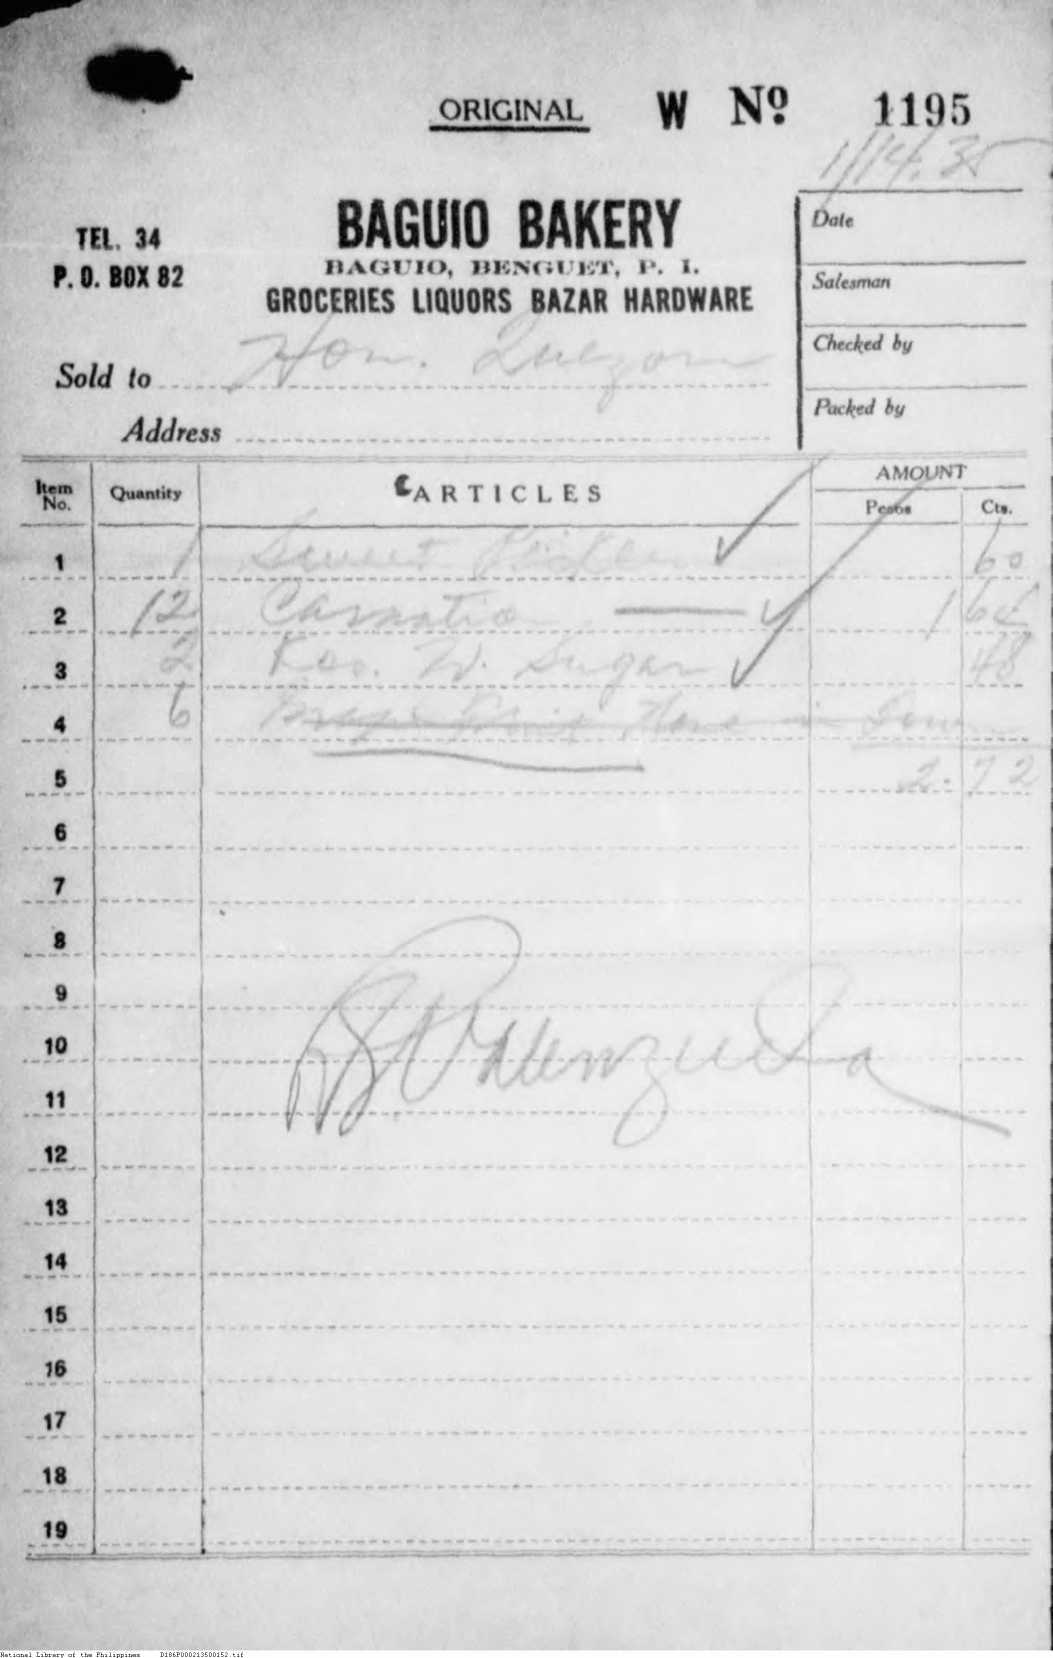 ORIGINAL W Nº 1195
1/14.35
BAGUIO BAKERY
TEL. 34
P. O. BOX 82
BAGUIO, BENGUET, P. I.
GROCERIES LIQUORS BAZAR HARDWARE
Date
Salesman
Checked by
Packed by
Sold to Hon. Quezon
Address
Item No. Quantity ARTICLES AMOUNT Pesos Cts.
1 1 Sweet 60
2 12 Carnation 1 64
3 2 Kos. W. Sugar 48
4 6 None in Town
5 2.72
6
7
8
9
10
Valenzuela
11
12
13
14
15
16
17
18
19
National Library of the Philippines D186P000213500152.tif